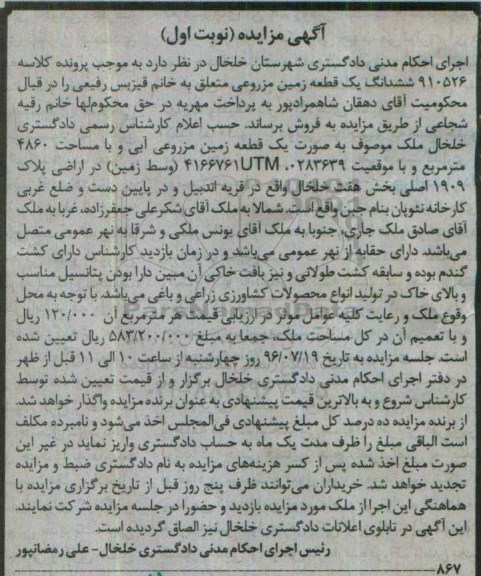 آگهی مزایده (نوبت اول)
اجرای احکام مدنی دادگستری شهرستان خلخال در نظر دارد به موجب پرونده کلاسه
۹۱۰۵۲۶ ششدانگ یک قطعه زمین مزروعی متعلق به خانم قیزبس رفیعی را در قبال
محکومیت آقای دهقان شاهمرادپور به پرداخت مهریه در حق محکوم‌لها خانم رقیه
شجاعی از طریق مزایده به فروش برساند. حسب اعلام کارشناس رسمی دادگستری
خلخال ملک موصوف به صورت یک قطعه زمین مزروعی آبی و با مساحت ۴۸۶۰
مترمربع و با موقعیت ۰۲۸۳۶۳۹. ۴۱۶۶۷۶۱UTM (وسط زمین) در اراضی پلاک
۱۹۰۹ اصلی بخش هفت خلخال واقع در قریه اندبیل و در پایین دست و ضلع غربی
کارخانه نئوپان بنام جبن واقع است. شمالا به ملک آقای شکرعلی جعفرزاده، غربا به ملک
آقای صادق ملک جاری، جنوبا به ملک آقای یونس ملکی و شرقا به نهر عمومی متصل
می‌باشد. دارای حقابه از نهر عمومی می‌باشد و در زمان بازدید کارشناس دارای کشت
گندم بوده و سابقه کشت طولانی و نیز بافت خاکی آن مبین دارا بودن پتانسیل مناسب
و بالای خاک در تولید انواع محصولات کشاورزی زراعی و باغی می‌باشد. با توجه به محل
وقوع ملک و رعایت کلیه عوامل موثر در ارزیابی قیمت هر مترمربع آن ۱۲۰/۰۰۰ ریال
و با تعمیم آن در کل مساحت ملک، جمعا به مبلغ ۵۸۳/۲۰۰/۰۰۰ ریال تعیین شده
است. جلسه مزایده به تاریخ ۹۶/۰۷/۱۹ روز چهارشنبه از ساعت ۱۰ الی ۱۱ قبل از ظهر
در دفتر اجرای احکام مدنی دادگستری خلخال برگزار و از قیمت تعیین شده توسط
کارشناس شروع و به بالاترین قیمت پیشنهادی به عنوان برنده مزایده واگذار خواهد شد.
از برنده مزایده ده درصد کل مبلغ پیشنهادی فی‌المجلس اخذ می‌شود و نامبرده مکلف
است الباقی مبلغ را ظرف مدت یک ماه به حساب دادگستری واریز نماید در غیر این
صورت مبلغ اخذ شده پس از کسر هزینه‌های مزایده به نام دادگستری ضبط و مزایده
تجدید خواهد شد. خریداران می‌توانند ظرف پنج روز قبل از تاریخ برگزاری مزایده با
هماهنگی این اجرا از ملک مورد مزایده بازدید و حضورا در جلسه مزایده شرکت نمایند.
این آگهی در تابلوی اعلانات دادگستری خلخال نیز الصاق گردیده است.
رئیس اجرای احکام مدنی دادگستری خلخال- علی رمضانپور
۸۶۷